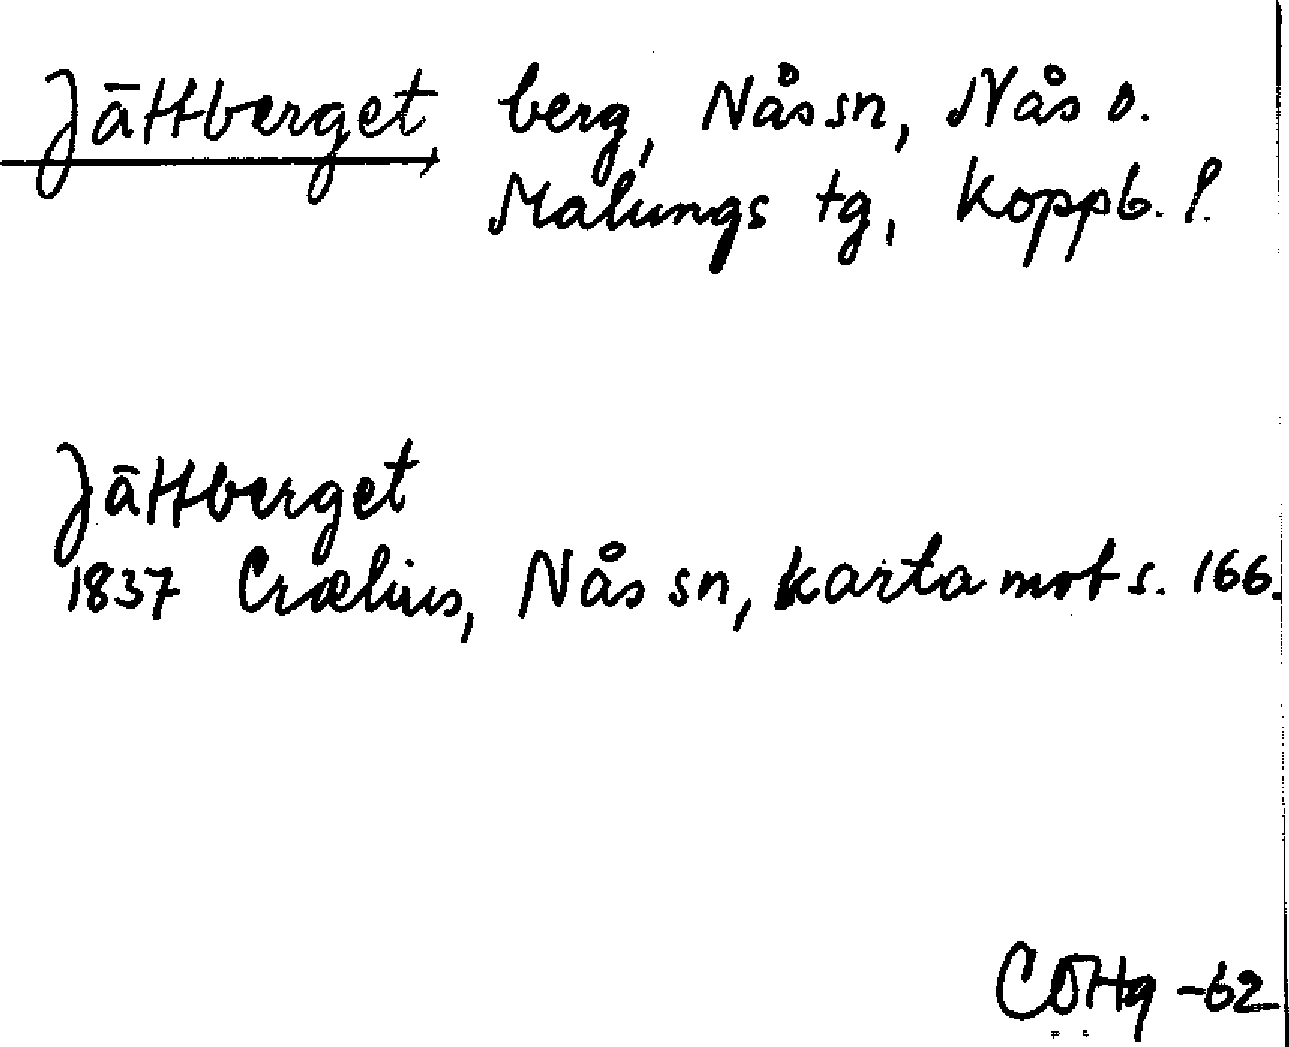 Jättberget berg, Nås sn, Nås o.
Malungs tg, Koppb. l.
Jättberget
1837 Crælius, Nås sn, karta mot s. 166.
-62